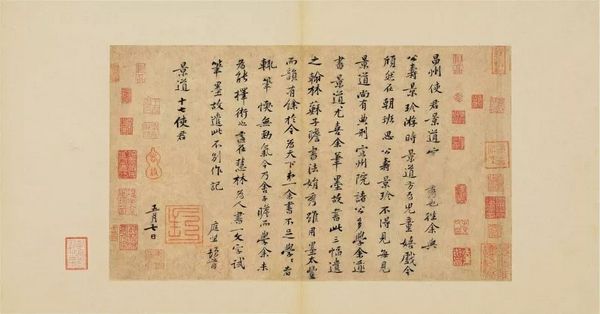 昌州使君景道宗秀也往余與
公壽景珍游時景道方為兒童嬉戲今
頎然在朝班思公壽景珍不得見每見
景道尚有典刑宣州院諸公多學余
書景道尤喜余筆墨故書此三幅遺
之翰林蘇子瞻書法娟秀雖用墨太豐
而韻有餘於今為天下第一余書不足學學者
輒筆愞無勁氣今乃舍子瞻而學余未
為能擇術也適在慧林為人書一文字試
筆墨故遣此不別作記
庭堅頓首
景道十七使君
五月七日